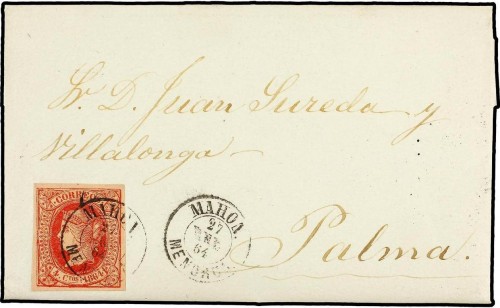 Sr. D. Juan Sureda y
Villalonga
Palma.
CORREOS
4 CTOS 1864
MAHON
MENORCA
MAHON
27
ENE
64
MENORCA